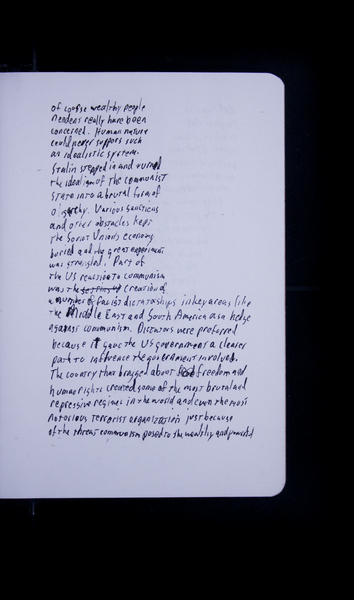 of course wealthy people
needens really have been
concerned. Human nature
could never support such
an idealistic system.
Stalin stepped in and turned
the idealism of the communist
state into a brutal form of
oligarchy. Various sanctions
and other obstacles kept
the Soviet Union's economy
buried and the great experiment
was strangled. Part of
the US reaction to communism
was the creation of
a number of facist dictatorships in key areas like
the Middle East and South America as a hedge
against communism. Dictators were preferred
because it gave the US government a clearer
path to influence the government involved.
The country that bragged about freedom and
human rights created some of the most brutal and
repressive regimes in the world and even the most
notorious terrorist organization just because
of the threat communism posed to the wealthy and powerful